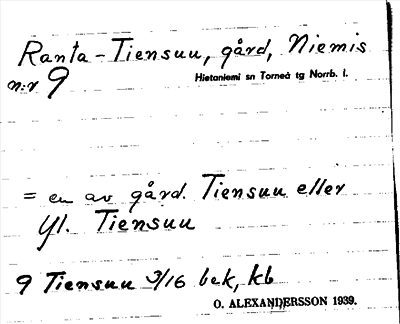 Ranta-Tiensuu, gård, Niemis
n:r 9 Hietaniemi sn Torneå tg Norrb. l.
= en av gård. Tiensuu eller
Yl. Tiensuu
9 Tiensuu 3/16 bek, kb
O. ALEXANDERSSON 1939.